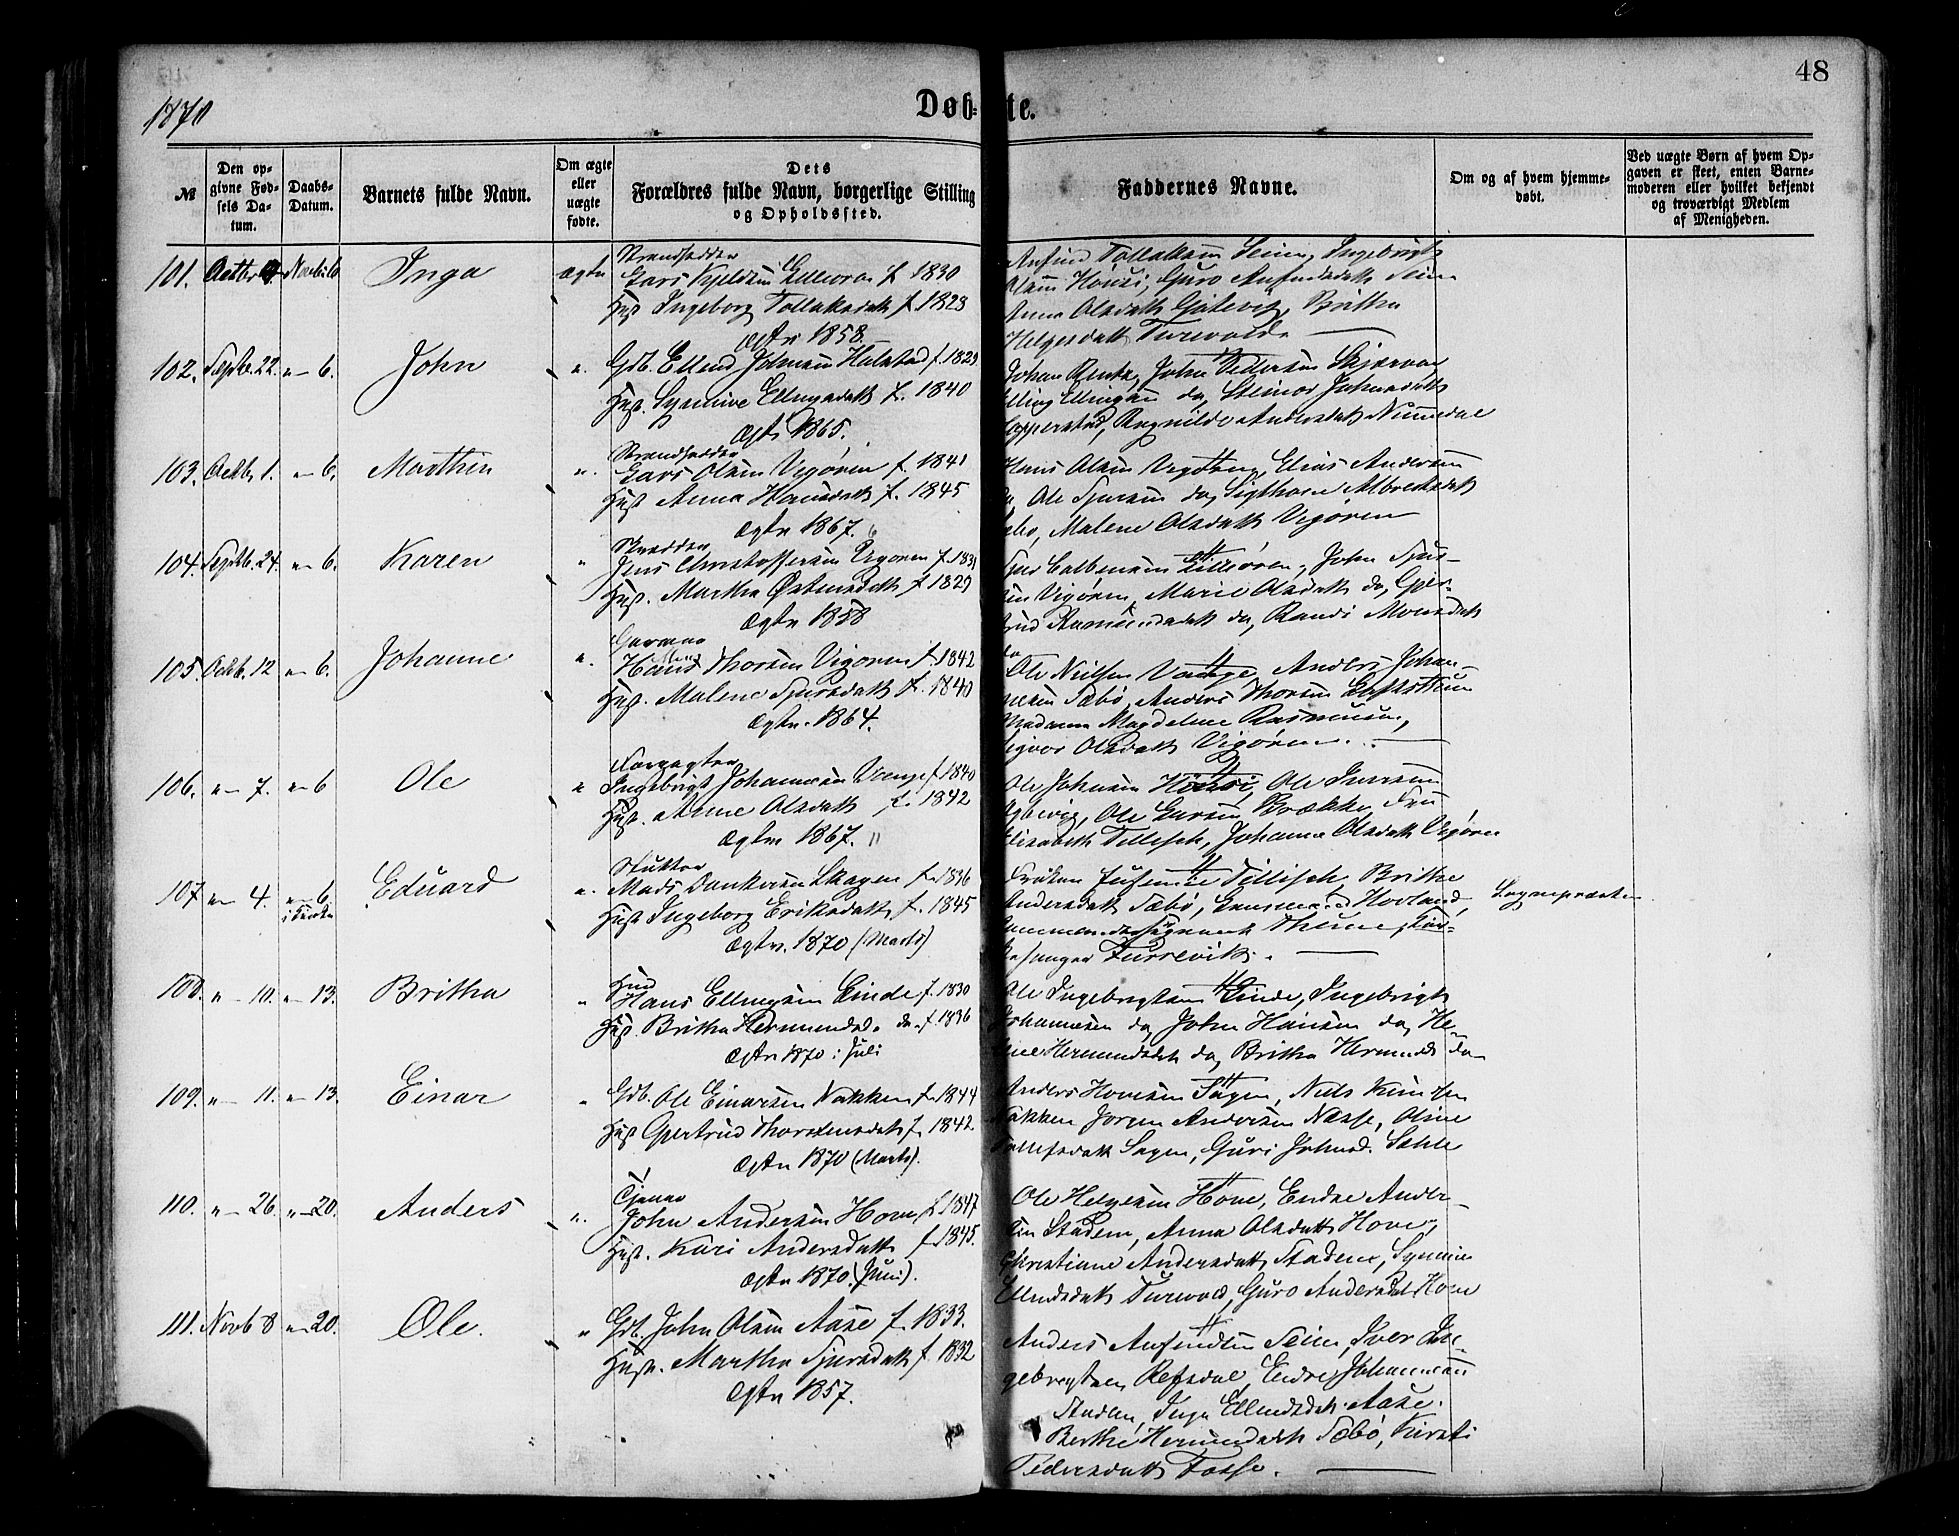 48
1870
Døb- te.
№
Den op-
givne Fød-
sels Da-
tum.
Daabs-
Datum.
Barnets fulde Navn.
Om ægte
eller
uægte
fødte.
Dets
Forældres fulde Navn, borgerlige Stilling
og Opholdssted.
Faddernes Navne.
Om og af hvem hjemme-
døbt.
Ved uægte Børn af hvem Op-
gaven er skeet, enten Barne-
moderen eller hvilket bekjendt
og troværdigt Medlem
af Menigheden.
101. Octbr Novb 6 Inga ægte
Strandsidder
Lars Kjeldsen f 1830
Hust Ingeborg Tollaksdatt f 1828
Ægtev 1858.
Anfind Tollaksen Seim, Ingebrigt
Olsen Guro Anfindsdatt Seim
Anna Olsdatt Britha
Helgesdatt
102. Septbr. 22. " 6. John "
Gdb. Ellend Johnsen Hopstad f. 1829
Hust. Synneve Ellingsdatt f. 1840
Ægtv 1865.
Johan John Pedersen
Elling Ellingsen do, Steinor Johnsdatt
Ragnilde Andersdatt Nummedal
103. Octb. 1. " 6. Marthin "
Strandsidder
Lars Olsen Vigøren f. 1841
Hust Anna Hansdatt f. 1845
Ægtv 1867.
Hans Olsen Elias Andersen
Ole Sjursen do, Albrektsdatt
Malene Olsdatt Vigøren
104. Septb. 24. " 6. Karen "
Skrædder
Jens Christoffersen Vigøren f 1831
Hust. Martha Østensdatt f 1829
Ægtv 1858
John Sjur-
sen Vigøren, Marie Olsdatt do, Gjer-
trud Rasmusdatt do, Randi Monsdatt
do
105. Octb. 12 " 6. Johanne "
Garver
Hans Thorsen Vigøren f. 1842
Hust. Malene Sjursdatt f. 1840
Ægtv. 1864.
Ole Nilsen Vange, Anders Johan-
nesen Sæbø, Anders Thorsen
Madame Magdelene Rasmussen,
Sigvor Olsdatt Vigøren.
106. " 7. " 6 Ole "
Forpagter
Ingebrigt Johannesen Vange f. 1840
Hust. Anne Olsdatt f. 1842
Ægtev 1867.
Ole Johnsen Ole Iversen
Ole Larsen Brække, Fru
Elisabeth Tillisch, Johanna Olsdatt Vigøren
107 " 4. " 6. i Kirken Eduard "
Mads Dankersen Skagen f. 1836
Hust Ingeborg Eriksdatt f. 1845
Ægtv. 1870 (Marts)
Frøken Tillisch Britha
Andersdatt Sæbø, Hovland,
Thune, Kir-
kesanger Turvevik.
Sognepræsten
108. " 10. " 13. Britha "
Husm
Hans Ellingsen Linde f. 1830
Hust. Britha Hermundsd. do f. 1836
Ægtv 1870 i Juli
Ole Ingebrigtsen Linde, Ingebrigt
Johannesen do, John Hansen do, He-
line Hermundsdatt do, Britha Hermundsd do
109. " 11. " 13. Einar "
Gdb. Ole Einarsen Nakken f. 1844
Hust Gjertrud Thorstensdatt f. 1842
Ægtv 1870 (Marts).
Anders Hovesen Sagen, Niels Knudsen
Nakken Jørgen Andersen Næsse, Oline
Tollefsdatt Sagen, Guri Johnsd. Sæhle
110. " 26. " 20. Anders "
Tjener
John Andersen Hove f. 1847
Hust. Kari Andersdatt f. 1845.
Ægtv 1870 (Juni).
Ole Helgesen Hove, Endre Ander-
sen Stadem, Anna Olsdatt Hove,
Christiane Andersdatt Stadem, Synneve
Ellendsdatt Guro Andersdatt Hove
111. Novb 8 " 20. Ole. "
Gdb. John Olsen Aase f. 1833.
Hust. Martha Sjursdatt f. 1832
Ægtv 1857.
Anders Anfindsen Seim, Iver In-
gebregtsen Refsdal, Endre Johannesen
Inga Ellendsdatt Aase.
Berthe Hermundsdatt Sæbø, Kirsti
Pedersdatt Fosse.